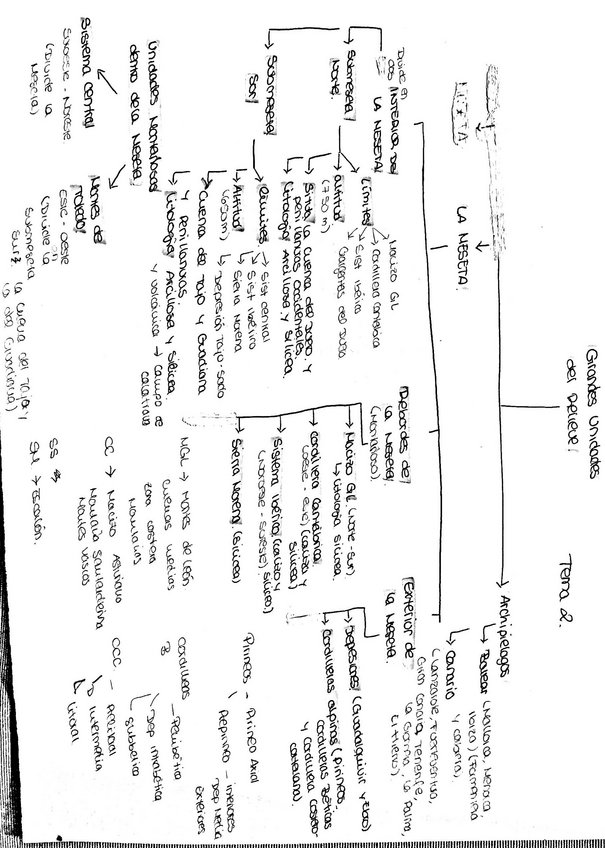 Tema 2.
Grandes Unidades
del Relieve:
LA MESETA.
Archipiélagos
Balear (Mallorca, Menorca,
Ibiza) (Formentera
y Cabrera)
Canario
(Lanzarote, Fuerteventura,
Gran Canaria, Tenerife,
la Gomera, la Palma,
El Hierro)
INTERIOR DE
LA MESETA
Divide en
dos
Submeseta
Norte.
Límites
Macizo GLL
Cordillera Cantábrica
Sist Ibérico
altitud
(750 m)
Sitúa la cuenca del Duero y
penillanuras occidentales.
Litología Arcillosa y Silícea.
Submeseta
Sur
Límites
Sist central
Sist Ibérico
Sierra Morena
Altitud
(650m)
Depresión Tajo-Sado
Cuenca de Tajo y Guadiana
y penillanuras
Litología Arcillosa y Silícea
y volcánica → Campo de
Calatrava
Unidades Montañosas
dentro de la Meseta
Sistema Central
Suroeste - Noreste
(Divide la
Meseta)
Montes de
Toledo
Este - Oeste
(Divide la
Submeseta
Sur
la cuenca del Tajo y
la del Guadiana)
Rebordes de
la Meseta
(Montañoso)
Litología silícea.
Cordillera Cantábrica
(oeste - este) (caliza y
silícea)
Sistema Ibérico (caliza y
(Noroeste - sureste) silícea)
Sierra Morena (silícea)
Exterior de
la Meseta.
Depresiones (Guadalquivir y Ebro)
Cordilleras alpinas (pirineos,
cordilleras Béticas
y Cordillera Costero
catalana).
MGL → Montes de León
Cuencas medias
zona costera
Montañas
CC → Macizo Asturiano
Montaña Santanderina
Montes Vascos
SS
SM → Escalón.
Pirineos - Pirineo Axial
Prepirineo - interiores
Dep Media
exteriores
Cordilleras - Penibética
B
Dep intrabética
Subbética
CCC - Prelitoral
Intermedia
Litoral